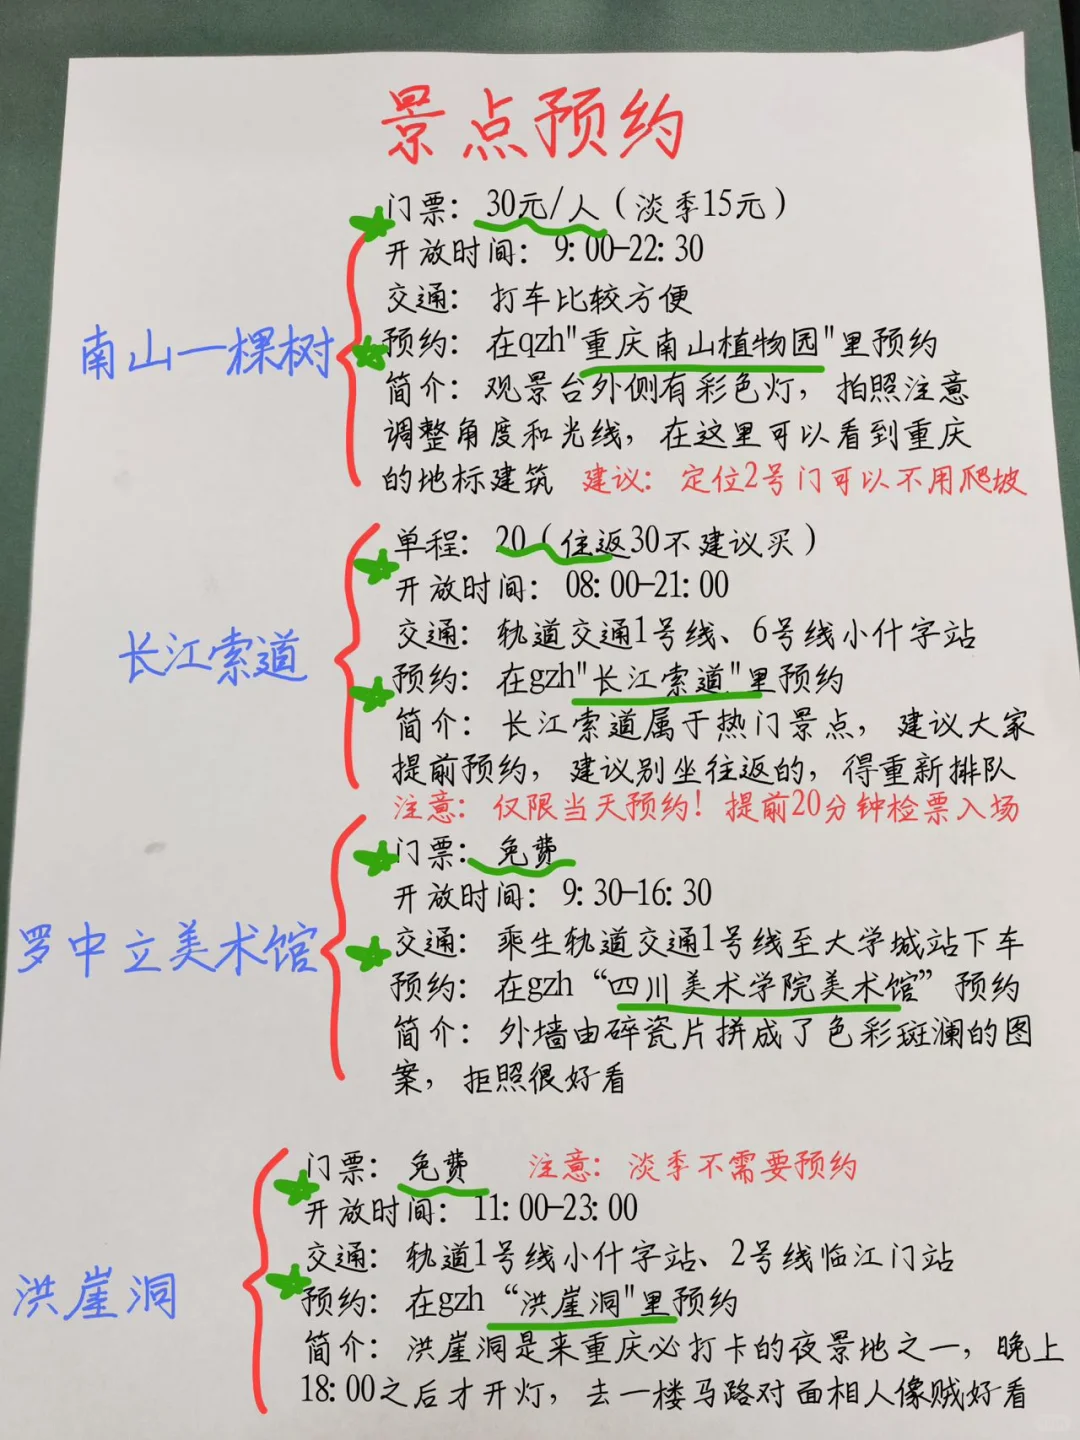 景点预约
门票：30元/人（淡季15元）
开放时间：9:00-22:30
交通：打车比较方便
南山一棵树
预约：在qzh"重庆南山植物园"里预约
简介：观景台外侧有彩色灯，拍照注意
调整角度和光线，在这里可以看到重庆
的地标建筑 建议：定位2号门可以不用爬坡
单程：20（往返30不建议买）
开放时间：08:00-21:00
交通：轨道交通1号线、6号线小什字站
长江索道
预约：在gzh"长江索道"里预约
简介：长江索道属于热门景点，建议大家
提前预约，建议别坐往返的，得重新排队
注意：仅限当天预约！提前20分钟检票入场
门票：免费
开放时间：9:30-16:30
交通：乘生轨道交通1号线至大学城站下车
罗中立美术馆
预约：在gzh“四川美术学院美术馆”预约
简介：外墙由碎瓷片拼成了色彩斑澜的图
案，拒照很好看
门票：免费 注意：淡季不需要预约
开放时间：11:00-23:00
交通：轨道1号线小什字站、2号线临江门站
洪崖洞
预约：在gzh“洪崖洞"里预约
简介：洪崖洞是来重庆必打卡的夜景地之一，晚上
18:00之后才开灯，去一楼马路对面相人像贼好看